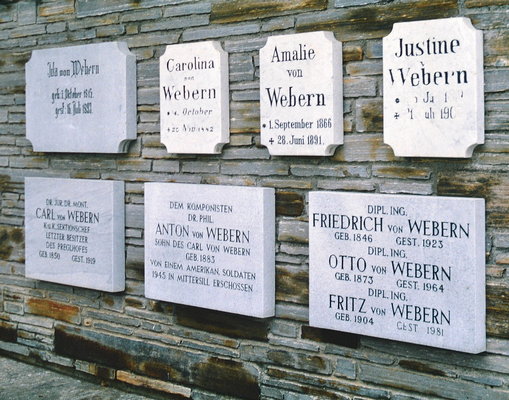 von Webern
geb. 1. Oktober
gest. 16. Juli
Carolina
von
Webern
* . October
+ 22 Nov 1882
Amalie
von
Webern
* 1. September 1866
+ 28. Juni 1891.
Justine
v
Webern
DR. JUR. DR. MONT.
CARL VON WEBERN
K.U.K. SEKTIONSCHEF
LETZTER BESITZER
DES PREGLHOFES
GEB. 1850 GEST. 1919
DEM KOMPONISTEN
DR. PHIL.
ANTON VON WEBERN
SOHN DES CARL VON WEBERN
GEB. 1883
VON EINEM AMERIKAN. SOLDATEN
1945 IN MITTERSILL ERSCHOSSEN
DIPL. ING.
FRIEDRICH VON WEBERN
GEB. 1846 GEST. 1923
DIPL. ING.
OTTO VON WEBERN
GEB. 1873 GEST. 1964
DIPL. ING.
FRITZ VON WEBERN
GEB. 1904 GEST 1981